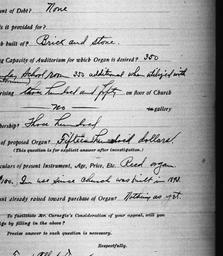 nt of Debt? None
is it provided for?
h built of? Brick and stone.
g Capacity of Auditorium for which Organ is desired? 350
day School room 350 additional when utilized with
rising three hundred and fifty on floor of Church
No in gallery
bership? Three hundred
of proposed Organ? Fifteen Hundred dollars
(This question is for explicit answer after investigation.)
culars of present Instrument, Age, Price, Etc. Reed organ
In use since church was built in 1898.
nt already raised toward purchase of Organ? Nothing as yet.
To facilitate Mr. Carnegie's Consideration of your appeal, will you
ige by filling in the above?
Precise answer to each question is necessary.
Respectfully,